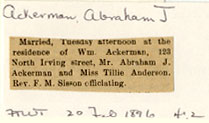 Ackerman, Abraham J
Married, Tuesday afternoon at the
residence of Wm. Ackerman, 123
North Irving street, Mr. Abraham J.
Ackerman and Miss Tillie Anderson,
Rev. F. M. Sisson officiating.
20 Feb 1896